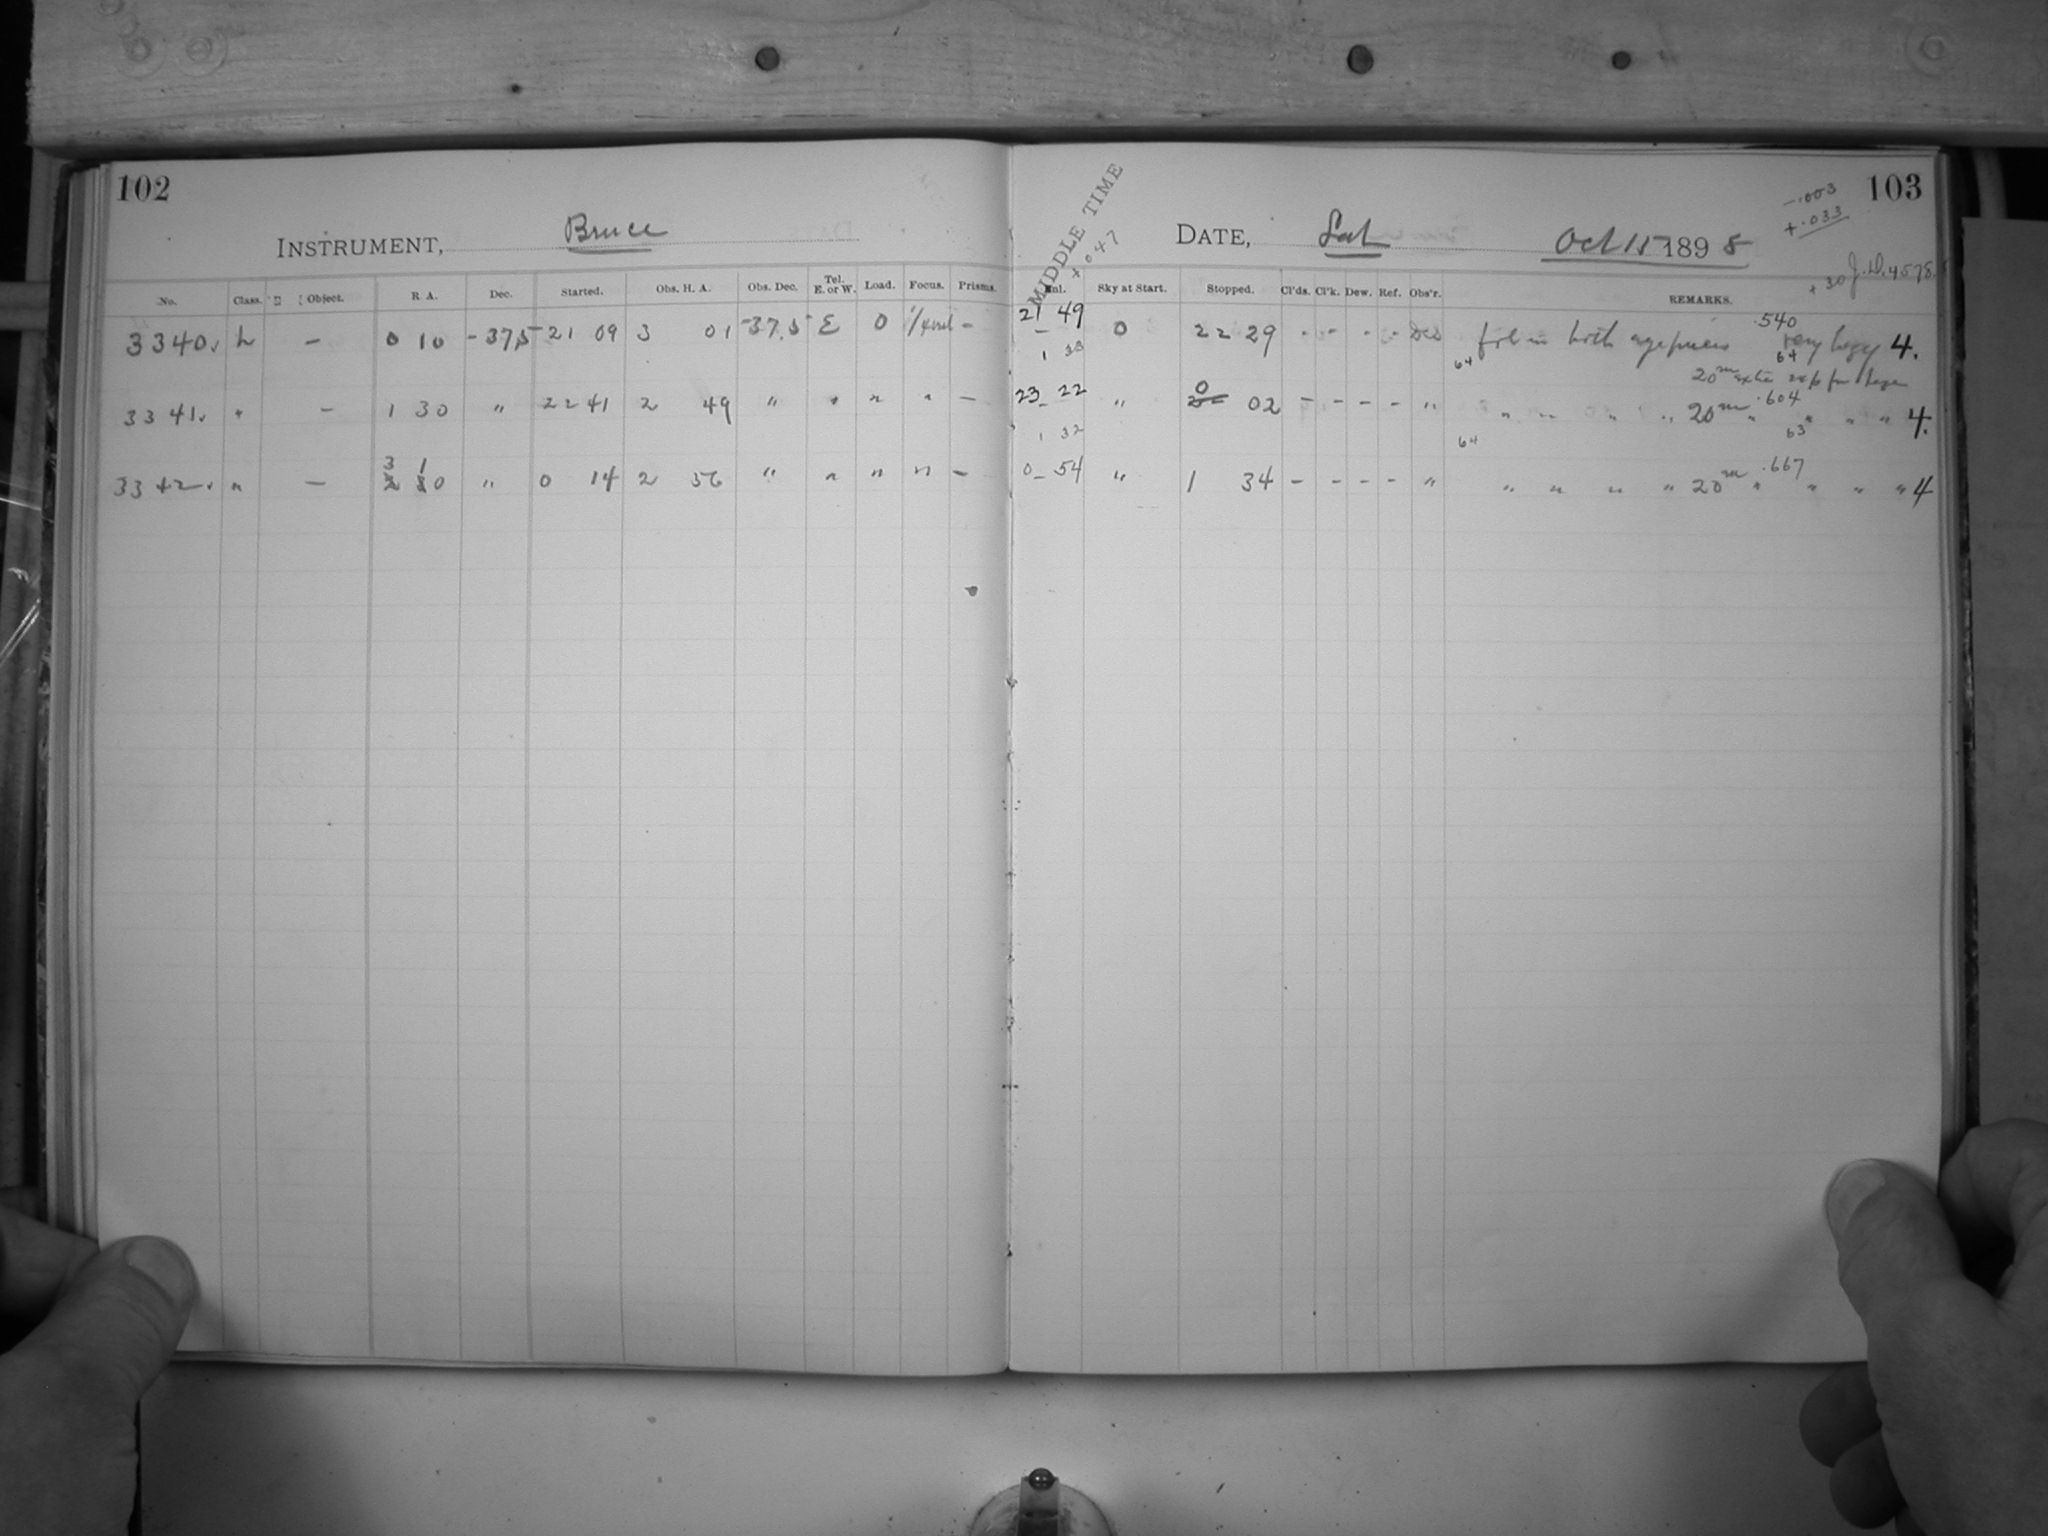 102
INSTRUMENT, Bruce
No. Class. Object. R A. Dec. Started. Obs. H. A. Obs. Dec. Tel. E. or W. Load. Focus. Prisms.
3340. L — 0 10 -37.5 21 09 3 01 -37.5 E 0 —
3341. " — 1 30 " 22 41 2 49 " " " " —
3342. " — 3 10 " 0 14 2 56 " " " " —
103
-.003
+.033
MIDDLE TIME
+047
DATE, Sat Oct 15 1898
+30 J.D. 4578
Sky at Start. Stopped. Cl'ds. Cl'k. Dew. Ref. Obs'r. REMARKS.
21 49 0 22 29 - - - - in both very hazy 4.
.540
1 33
64 64
20m extra exp for haze
23 22 " 0 02 - - - - " " " " " 20m " " " " 4.
.604
1 32
64 63
0 54 " 1 34 - - - - " " " " " 20m " " " " 4
.667